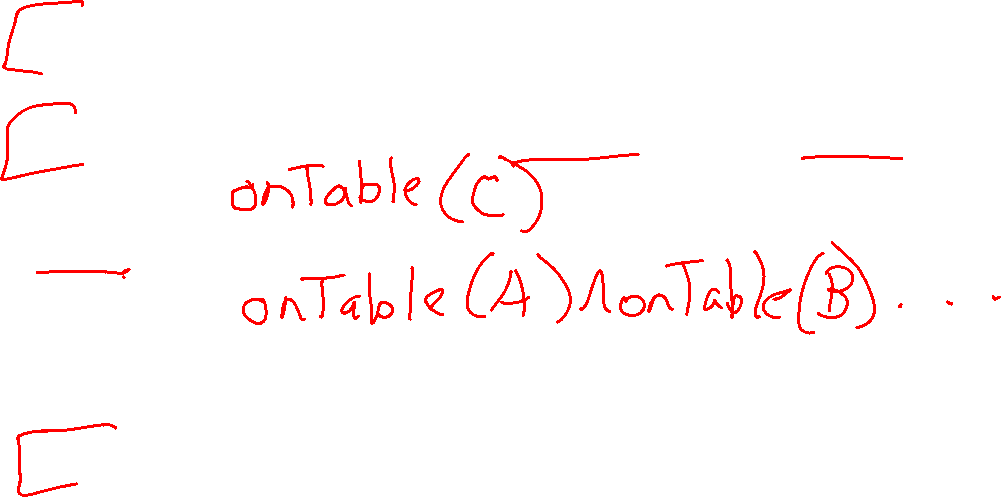 onTable(C)
onTable(A)ΛonTable(B). . .